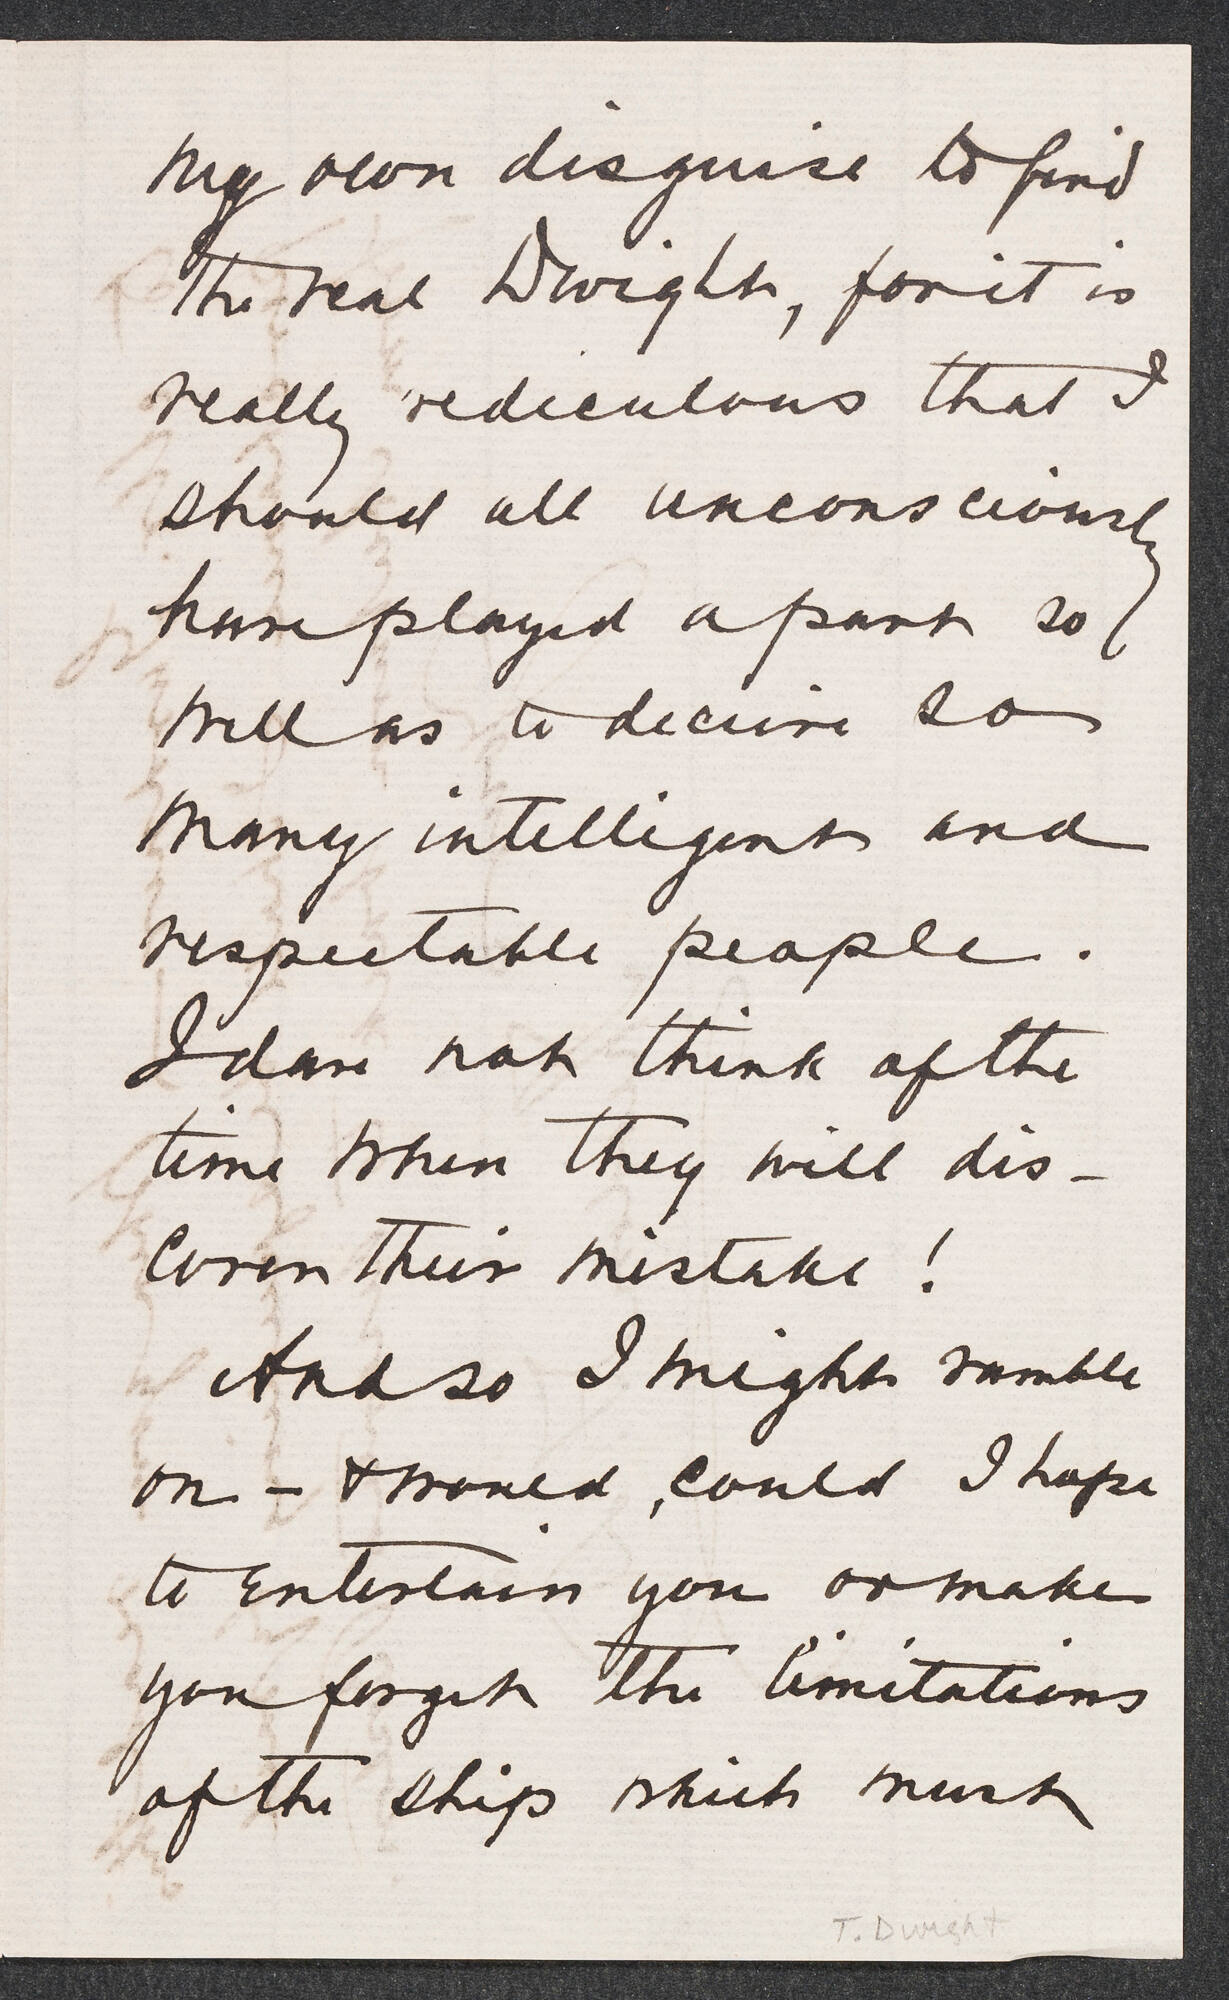 my own disguise to find
the real Dwight, for it is
really rediculous that I
should all unconsciously
have played a part so
well as to deceive so
many intelligent and
respectable people.
I dare not think of the
time when they will dis-
cover their mistake!
And so I might ramble
on - & would, could I hope
to entertain you or make
you forget the limitations
of the ship which must
T. Dwight